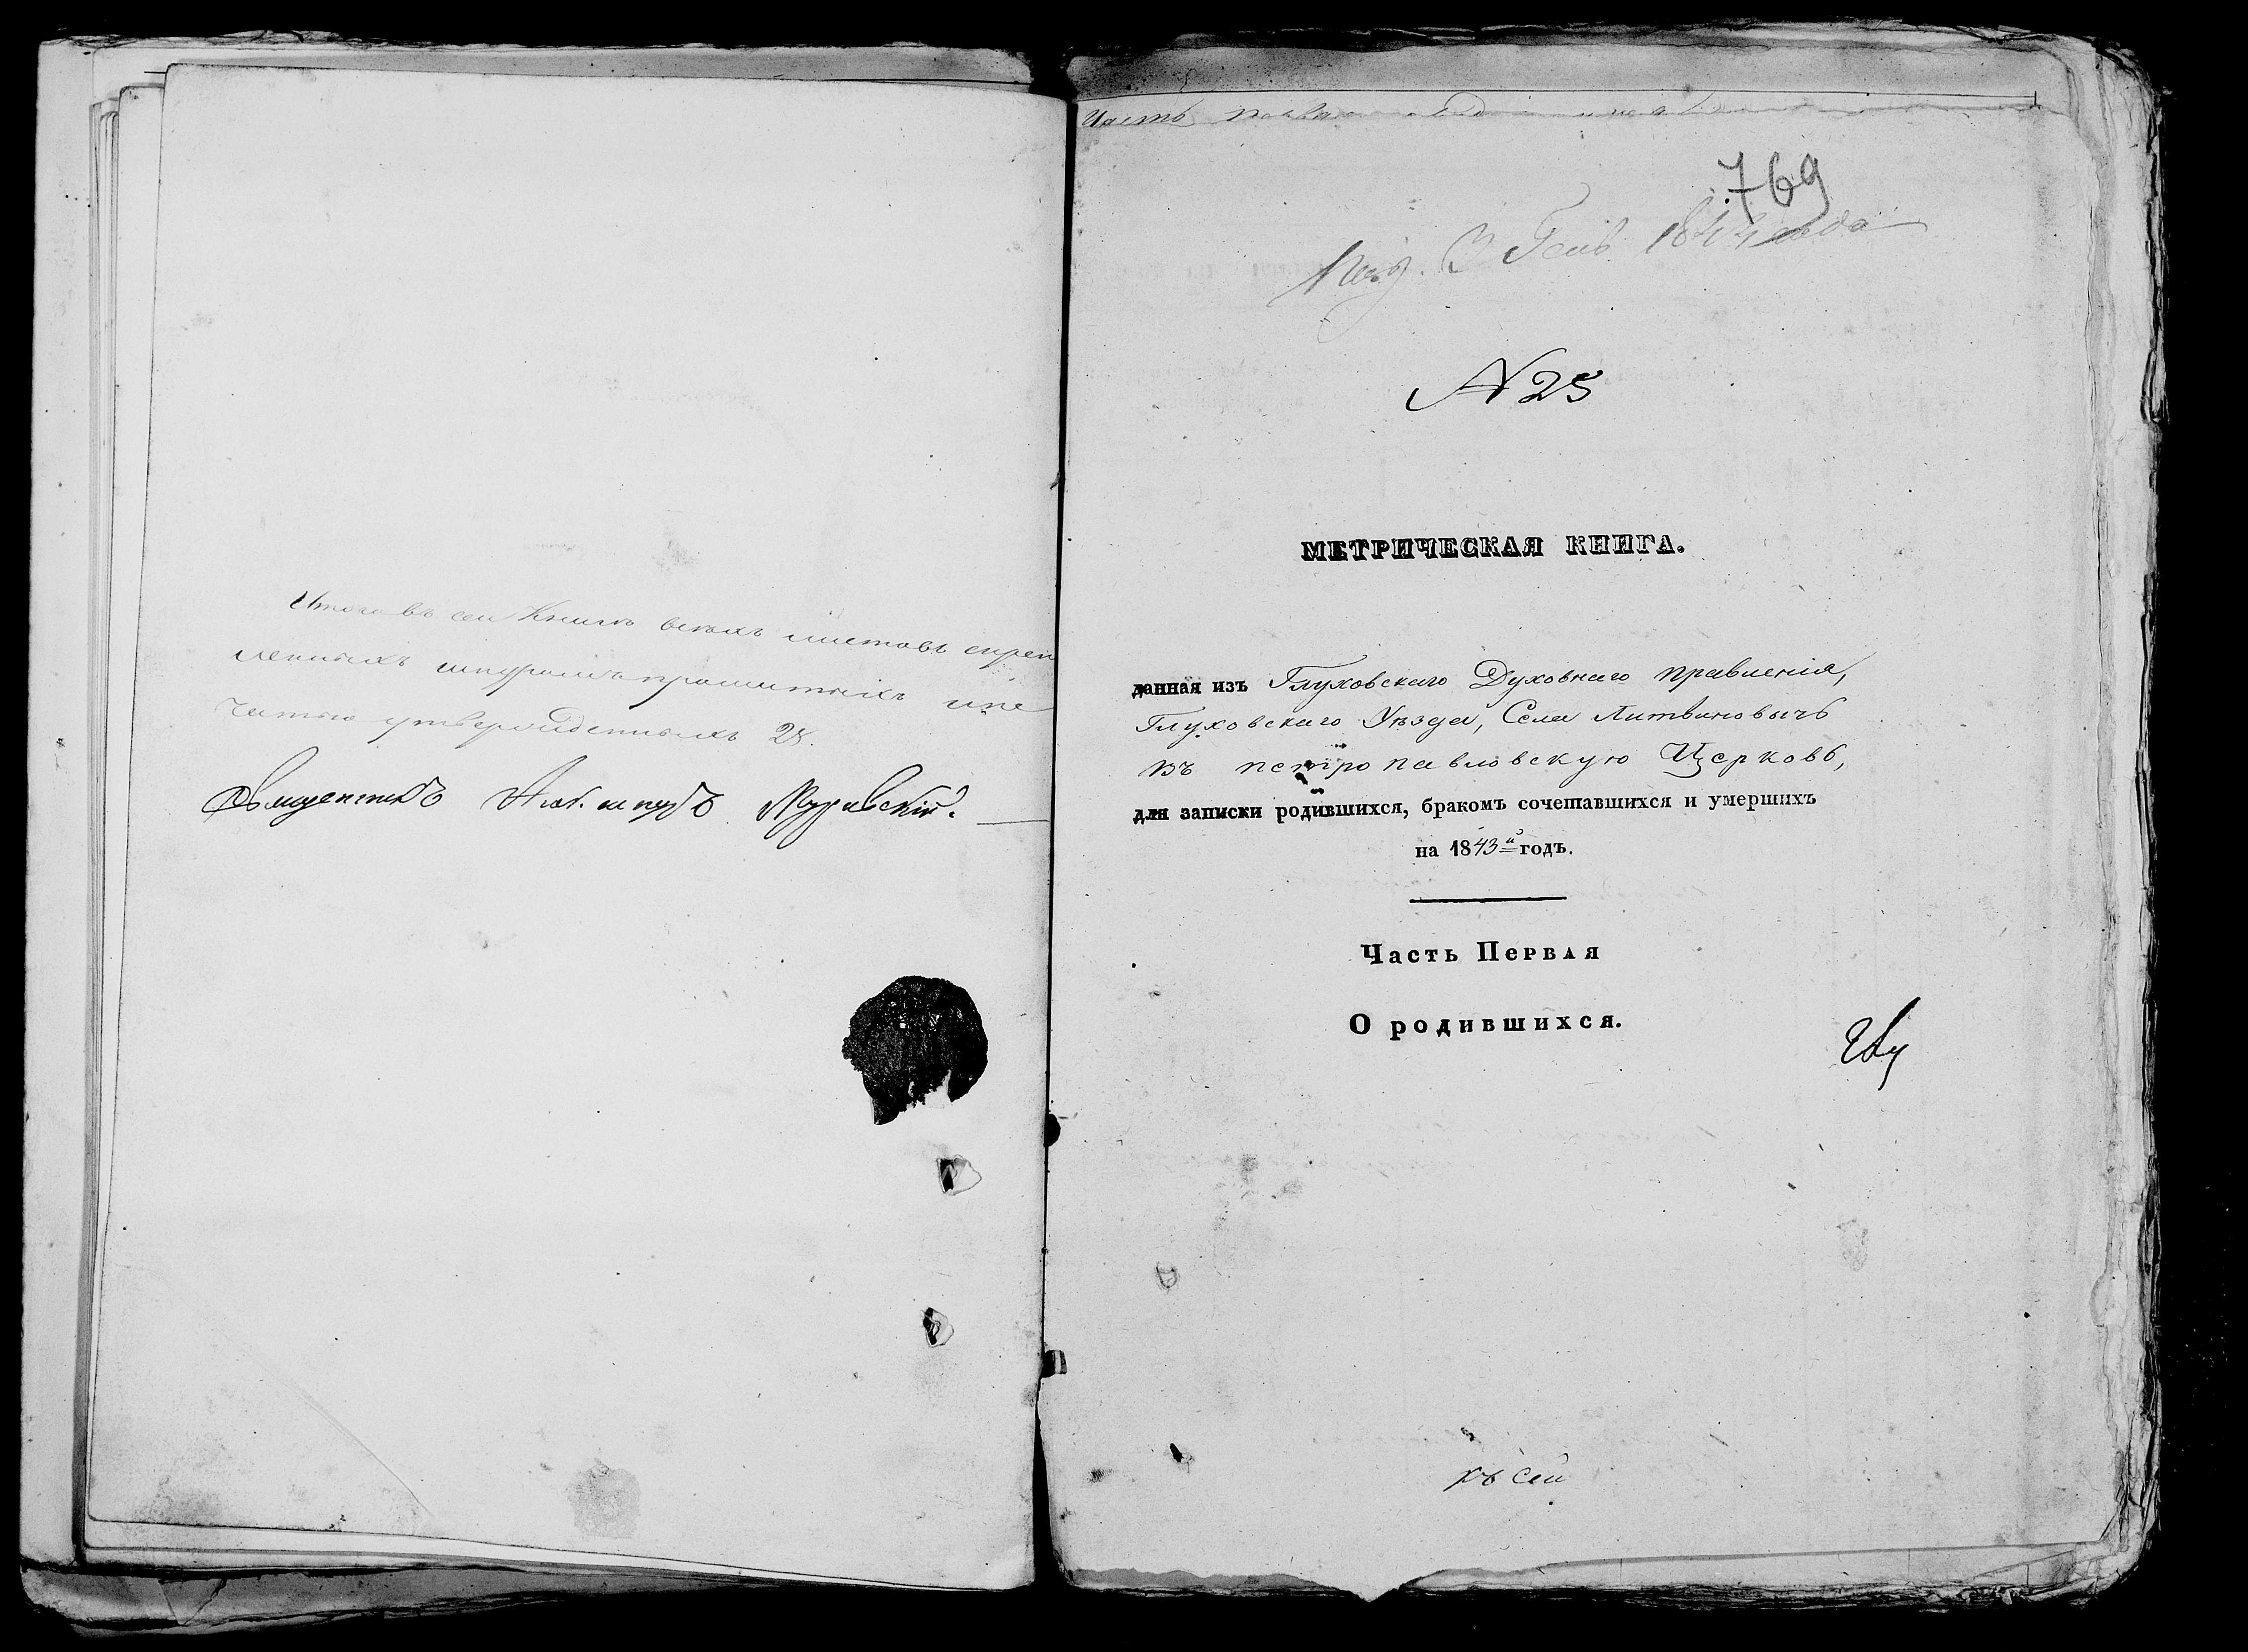 Итого въ сей Книги всѣхъ листовъ скреп
ленныхъ шнуромъ прошитыхъ ипе
чатью утвержденныхъ 28.
Священникъ
769
3 Генв. 1844 года
N 25
МЕТРИЧЕСКАЯ КНИГА.
данная изъ Глуховскаго Духовнаго правленія,
Глуховскаго Уѣзда, Села Литвиновычъ
въ петропавловскую Церковь,
для записки родившихся, бракомъ сочетавшихся и умершихъ
на 1843й годъ.
Часть Первая
О родившихся.
къ сей